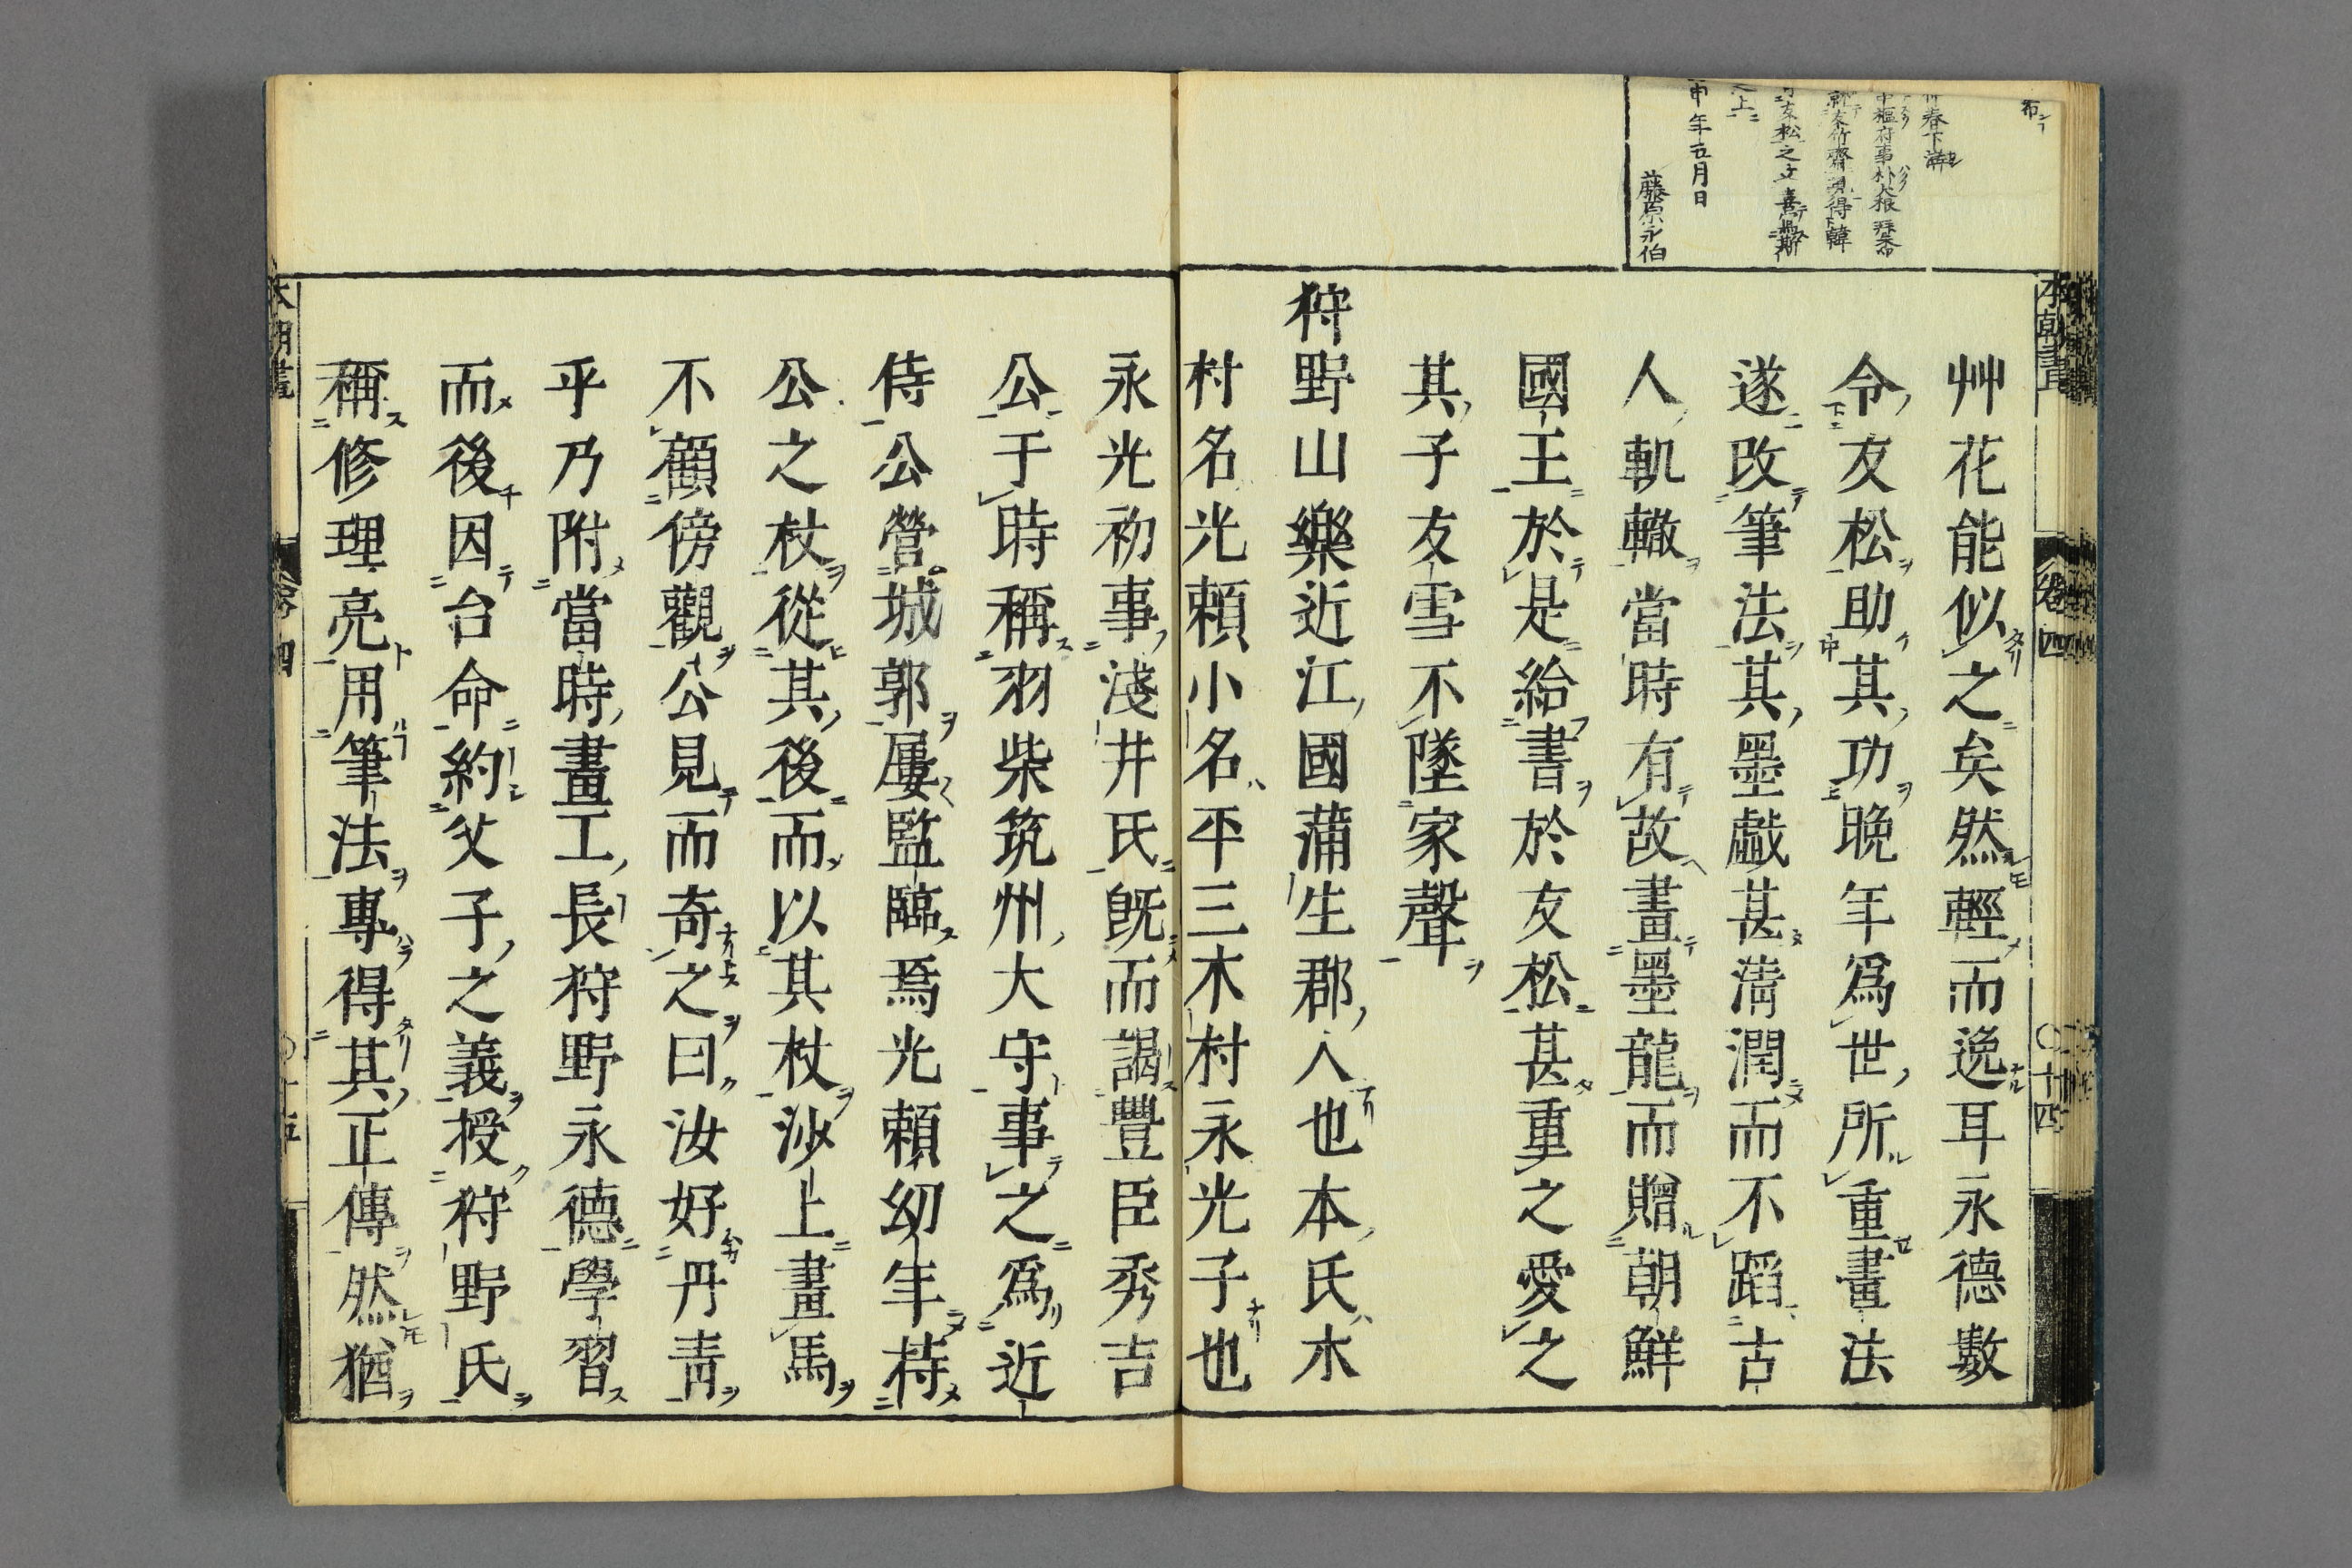 艸花能似之矣然輕而逸耳永德數
令友松助其功晚年爲世所重畫法
遂改筆法其墨戲甚淸潤而不蹈古
人軌轍當時有故畫墨龍而贈朝鮮
國王於是給書於友松甚重之愛之
其子友雪不墜家聲
狩野山樂近江國蒲生郡人也本氏木
村名光賴小名平三木村永光子也
永光初事淺井氏旣而謁豐臣秀吉
公于時稱羽柴筑州大守事之爲近
侍公營城郭屢監臨焉光賴幼年持
公之杖從其後而以其杖沙上畫馬
不顧傍觀公見而奇之曰汝好丹靑
乎乃附當時畫工長狩野永德學習
而後因台命約父子之義授狩野氏
稱修理亮用筆法專得其正傳然猶
春下澣
樞府事朴大根拜
竹齋得韓
友松之
之上
申年五月日
藤原永伯
本朝畫
卷四
〇十四
本朝畫
卷四
〇十五